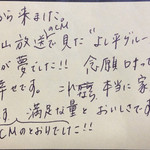 から来ました。
山放送のCMで見た"よし平グルー
が夢でした!! 念願叶って
幸せです。 これなら本当に家
す 満足な量と おいしさです
CMのとおりでした!!